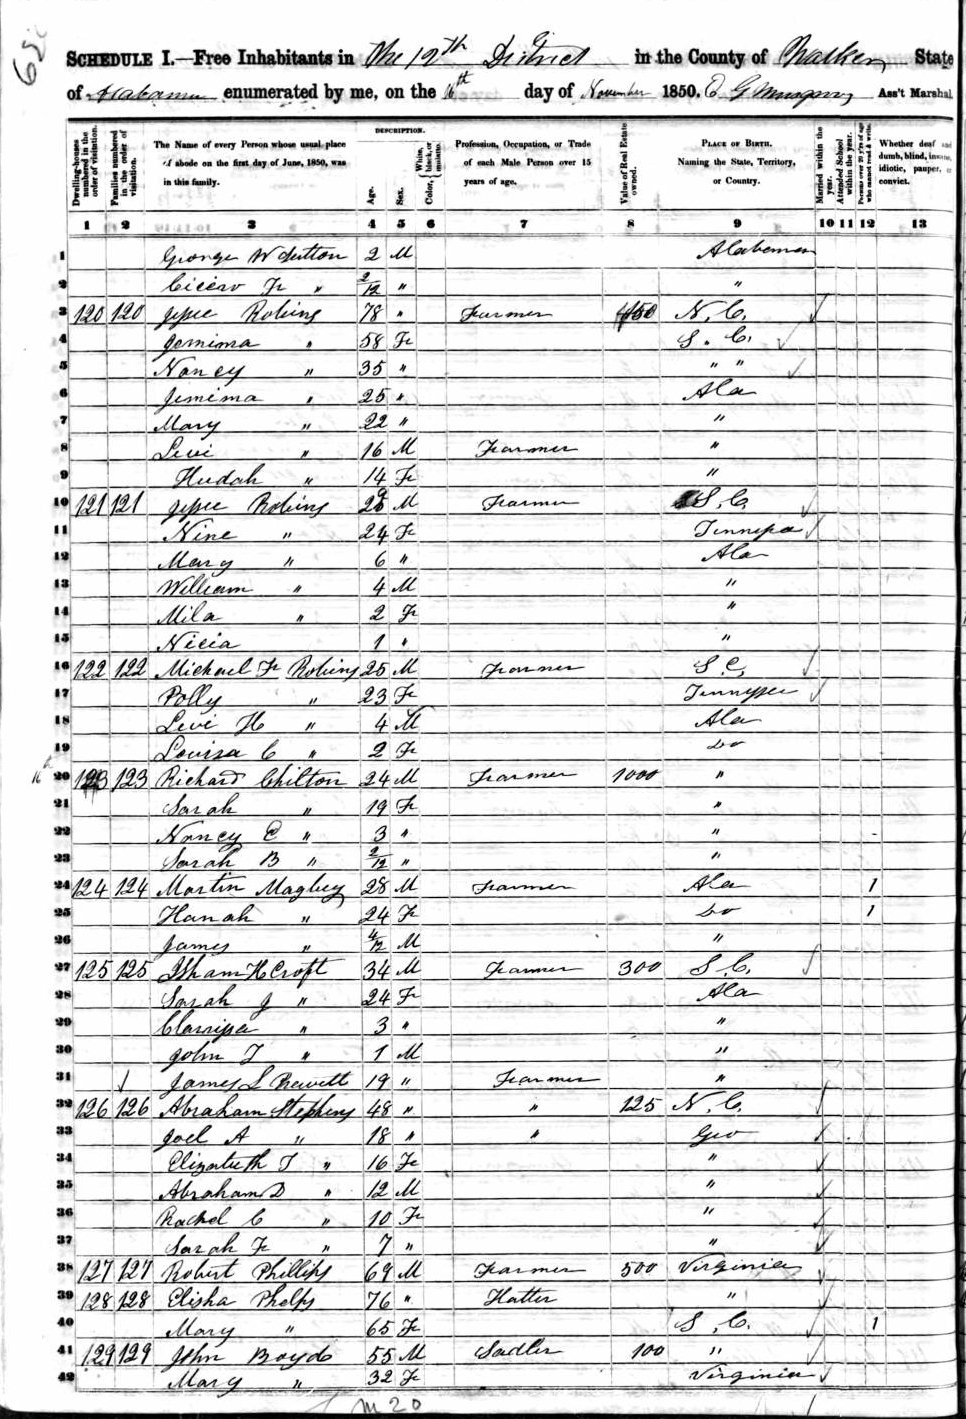 SCHEDULE I.—Free Inhabitants in The 19th District in the County of Walker State
of Alabama enumerated by me, on the 16th day of November 1850. Ass't Marshal
Dwelling-houses numbered in the order of visitation.
Families numbered in the order of visitation.
The Name of every Person whose usual place of abode on the first day of June, 1850, was in this family.
DESCRIPTION.
Age.
Sex.
Color, White, black, or mulatto.
Profession, Occupation, or Trade of each Male Person over 15 years of age.
Value of Real Estate owned.
PLACE OF BIRTH. Naming the State, Territory, or Country.
Married within the year.
Attended School within the year.
Persons over 20 y'rs of age who cannot read & write.
Whether deaf and dumb, blind, insane, idiotic, pauper, or convict.
1 2 3 4 5 6 7 8 9 10 11 12 13
1 George W Sutton 2 M Alabama
2 Cicero F " 2/12 " "
3 120 120 Jesse Robins 78 " Farmer 450 N. C.
4 Jemima " 58 F S. C.
5 Nancy " 35 " " "
6 Jemima " 25 " Ala
7 Mary " 22 " "
8 Levi " 16 M Farmer "
9 Hudah " 14 F "
10 121 121 Jesse Robins 29 M Farmer S. C.
11 Nine " 24 F Tennessee
12 Mary " 6 " Ala
13 William " 4 M "
14 Mila " 2 F "
15 Nicia 1 " "
16 122 122 Michael F Robins 25 M Farmer S C,
17 Polly " 23 F Tennessee
18 Levi H " 4 M Ala
19 Louisa C " 2 F Do
16th 20 123 123 Richard Chilton 24 M Farmer 1000 "
21 Sarah " 19 F "
22 Nancy E " 3 " "
23 Sarah B " 2/12 " "
24 124 124 Martin Magbey 28 M Farmer Ala 1
25 Hanah " 24 F Do 1
26 James " 4/12 M "
27 125 125 Isham H Croft 34 M Farmer 300 S. C.
28 Sarah J " 24 F Ala
29 Clarissa " 3 " "
30 John T " 1 M "
31 James L Prewett 19 " Farmer "
32 126 126 Abraham Stephens 48 " " 125 N. C.
33 Joel A " 18 " " Geo
34 Elizabeth T " 16 F "
35 Abraham D " 12 M "
36 Rachel C " 10 F "
37 Sarah F " 7 " "
38 127 127 Robert Phillips 69 M Farmer 500 Virginia
39 128 128 Elisha Phelps 76 " Hatter "
40 Mary " 65 F S. C. 1
41 129 129 John Boyd 55 M Sadler 100 "
42 Mary " 32 F Virginia
M 20